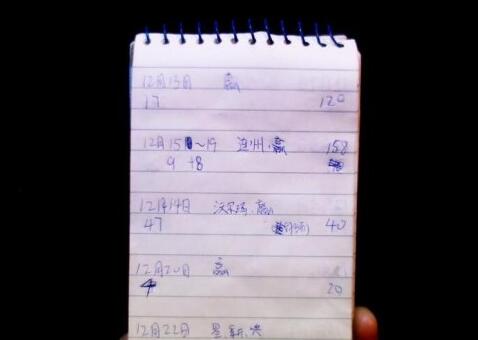 12月13日 赢
17 120
12月15~19 连州.赢 158
9 +8
12月14日 沃尔玛.赢
47 40
12月20日 赢
4 20
12月22日